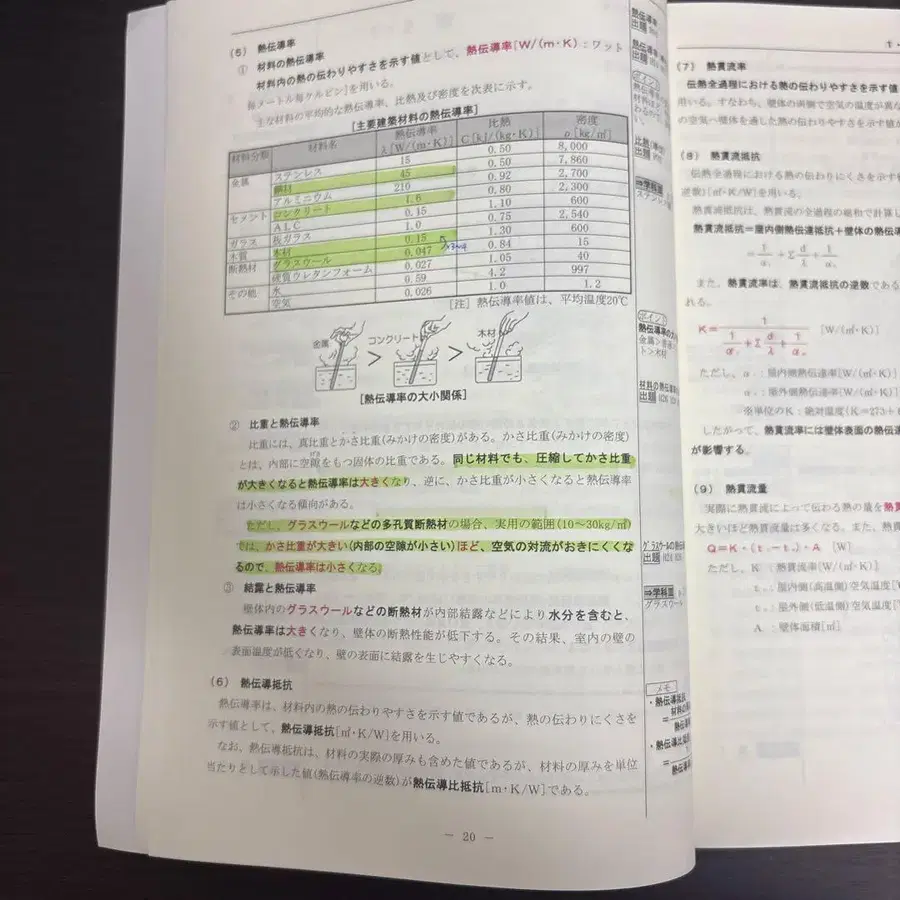 (5) 熱伝導率
① 材料の熱伝導率
材料内の熱の伝わりやすさを示す値として、熱伝導率[W/(m・K):ワット
毎メートル毎ケルビン]を用いる。
主な材料の平均的な熱伝導率、比熱及び密度を次表に示す。
[主要建築材料の熱伝導率]
材料分類 材料名 熱伝導率 λ[W/(m・K)] 比熱 C[kJ/(kg・K)] 密度 ρ[kg/㎥]
金属 ステンレス 15 0.50 8,000
鋼材 45 0.50 7,860
アルミニウム 210 0.92 2,700
セメント コンクリート 1.6 0.80 2,300
ALC 0.15 1.10 600
ガラス 板ガラス 1.0 0.75 2,540
木質 木材 0.15 1.30 600
断熱材 グラスウール 0.047 0.84 15
硬質ウレタンフォーム 0.027 1.05 40
その他 水 0.59 4.2 997
空気 0.026 1.0 1.2
[注] 熱伝導率値は、平均温度20℃
金属 > コンクリート > 木材
[熱伝導率の大小関係]
② 比重と熱伝導率
比重には、真比重とかさ比重(みかけの密度)がある。かさ比重(みかけの密度)
とは、内部に空隙をもつ固体の比重である。同じ材料でも、圧縮してかさ比重
が大きくなると熱伝導率は大きくなり、逆に、かさ比重が小さくなると熱伝導率
は小さくなる傾向がある。
ただし、グラスウールなどの多孔質断熱材の場合、実用の範囲(10～30kg/㎥)
では、かさ比重が大きい(内部の空隙が小さい)ほど、空気の対流がおきにくくな
るので、熱伝導率は小さくなる。
③ 結露と熱伝導率
壁体内のグラスウールなどの断熱材が内部結露などにより水分を含むと、
熱伝導率は大きくなり、壁体の断熱性能が低下する。その結果、室内の壁の
表面温度が低くなり、壁の表面に結露を生じやすくなる。
(6) 熱伝導抵抗
熱伝導率は、材料内の熱の伝わりやすさを示す値であるが、熱の伝わりにくさを
示す値として、熱伝導抵抗[㎡・K/W]を用いる。
なお、熱伝導抵抗は、材料の実際の厚みも含めた値であるが、材料の厚みを単位
当たりとして示した値(熱伝導率の逆数)が熱伝導比抵抗[m・K/W]である。
－ 20 －
熱伝導率
出題
ポイント
出題
⇒学科Ⅲ
ポイント
出題
出題
⇒学科Ⅲ
グラスウール
メモ
・熱伝導抵抗
(7) 熱貫流率
伝熱全過程における熱の伝わりやすさを示す値
用いる。すなわち、壁体の両側で空気の温度が異な
の空気へ壁体を通した熱の伝わりやすさを示す値が
(8) 熱貫流抵抗
伝熱全過程における熱の伝わりにくさを示す
逆数)[㎡・K/W]を用いる。
熱貫流抵抗は、熱貫流の全過程の総和で計算し
熱貫流抵抗=屋内側熱伝達抵抗+壁体の熱伝導
また、熱貫流率は、熱貫流抵抗の逆数である
れる。
K= [W/(㎡・K)]
ただし、α :屋内側熱伝達率[W/(㎡・K)]
α :屋外側熱伝達率[W/(㎡・K)]
※単位のK:絶対温度(K=273+
したがって、熱貫流率には壁体表面の熱伝達
が影響する。
(9) 熱貫流量
実際に熱貫流によって伝わる熱の量を熱貫
大きいほど熱貫流量は多くなる。また、熱貫
Q=K・(t －t )・A [W]
ただし、K :熱貫流率[W/(㎡・K)]
t :屋内側(高温側)空気温度[
t :屋外側(低温側)空気温度[
A :壁体面積[㎡]